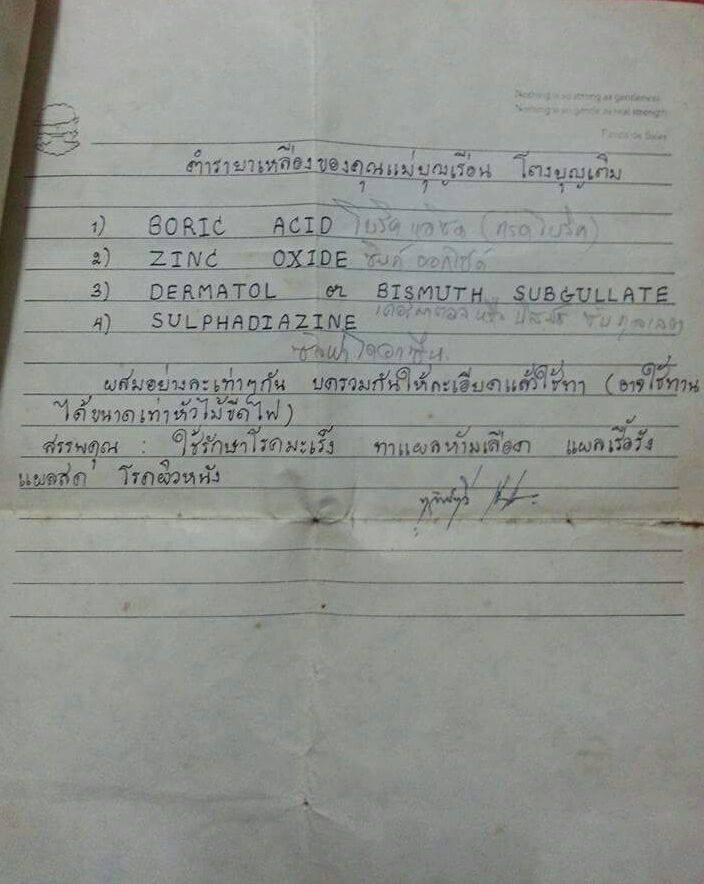 Nothing is so strong as gentleness
Nothing is so gentle as real strength
ตำรายาเหลืองของคุณแม่บุญเรือน โตงบุญเติม
1) BORIC ACID โบริค แอซิด (กรดโบริค)
2) ZINC OXIDE ซิงค์ ออกไซด์
3) DERMATOL or BISMUTH SUBGULLATE
4) SULPHADIAZINE เดอร์มาตอล หรือ บิสมัธ ซับ
ซัลฟาไดอาซีน
ผสมอย่างละเท่าๆกัน บดรวมกันให้ละเอียดแล้วใช้ทา (อาจใช้ทาน
ได้ขนาดเท่าหัวไม้ขีดไฟ)
สรรพคุณ : ใช้รักษาโรคมะเร็ง ทาแผลห้ามเลือด แผลเรื้อรัง
แผลสด โรคผิวหนัง